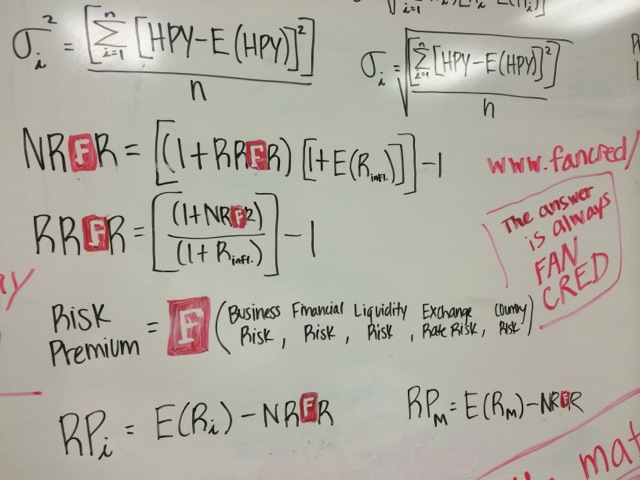 σᵢ² = [Σⁿᵢ₌₁ [HPY-E(HPY)]²] / n
σᵢ = √([Σⁿᵢ₌₁ [HPY-E(HPY)]²] / n)
NRFR = [(1+RRFR) [1+E(R_infl.)]] -1
www.fancred/
RRFR = [(1+NRF2) / (1+R_infl.)] - 1
The answer
is always
FAN
CRED
Risk Premium = F (Business Risk, Financial Risk, Liquidity Risk, Exchange Rate Risk, Country Risk)
RPᵢ = E(Rᵢ) - NRFR
RP_M = E(R_M) - NRFR